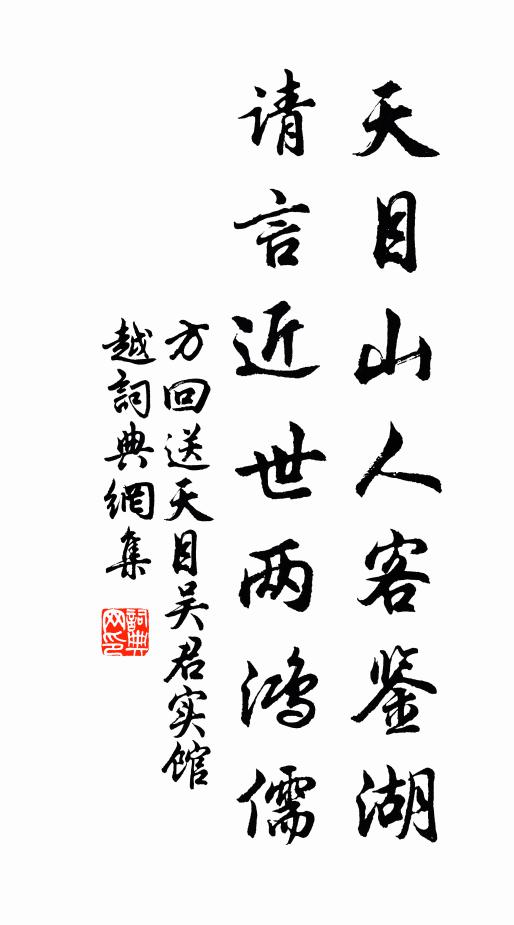 天目山人客鉴湖
请言近世两鸿儒
方回送天目吴君实馆
越詞典網集
詞典网印